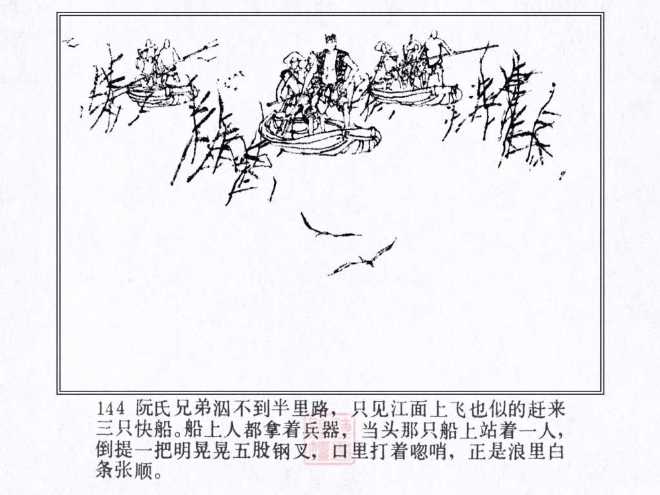 144 阮氏兄弟泅不到半里路，只见江面上飞也似的赶来
三只快船。船上人都拿着兵器，当头那只船上站着一人，
倒提一把明晃晃五股钢叉，口里打着唿哨，正是浪里白
条张顺。